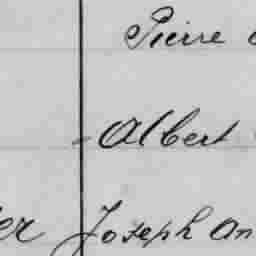 Pierre
Albert
er Joseph An